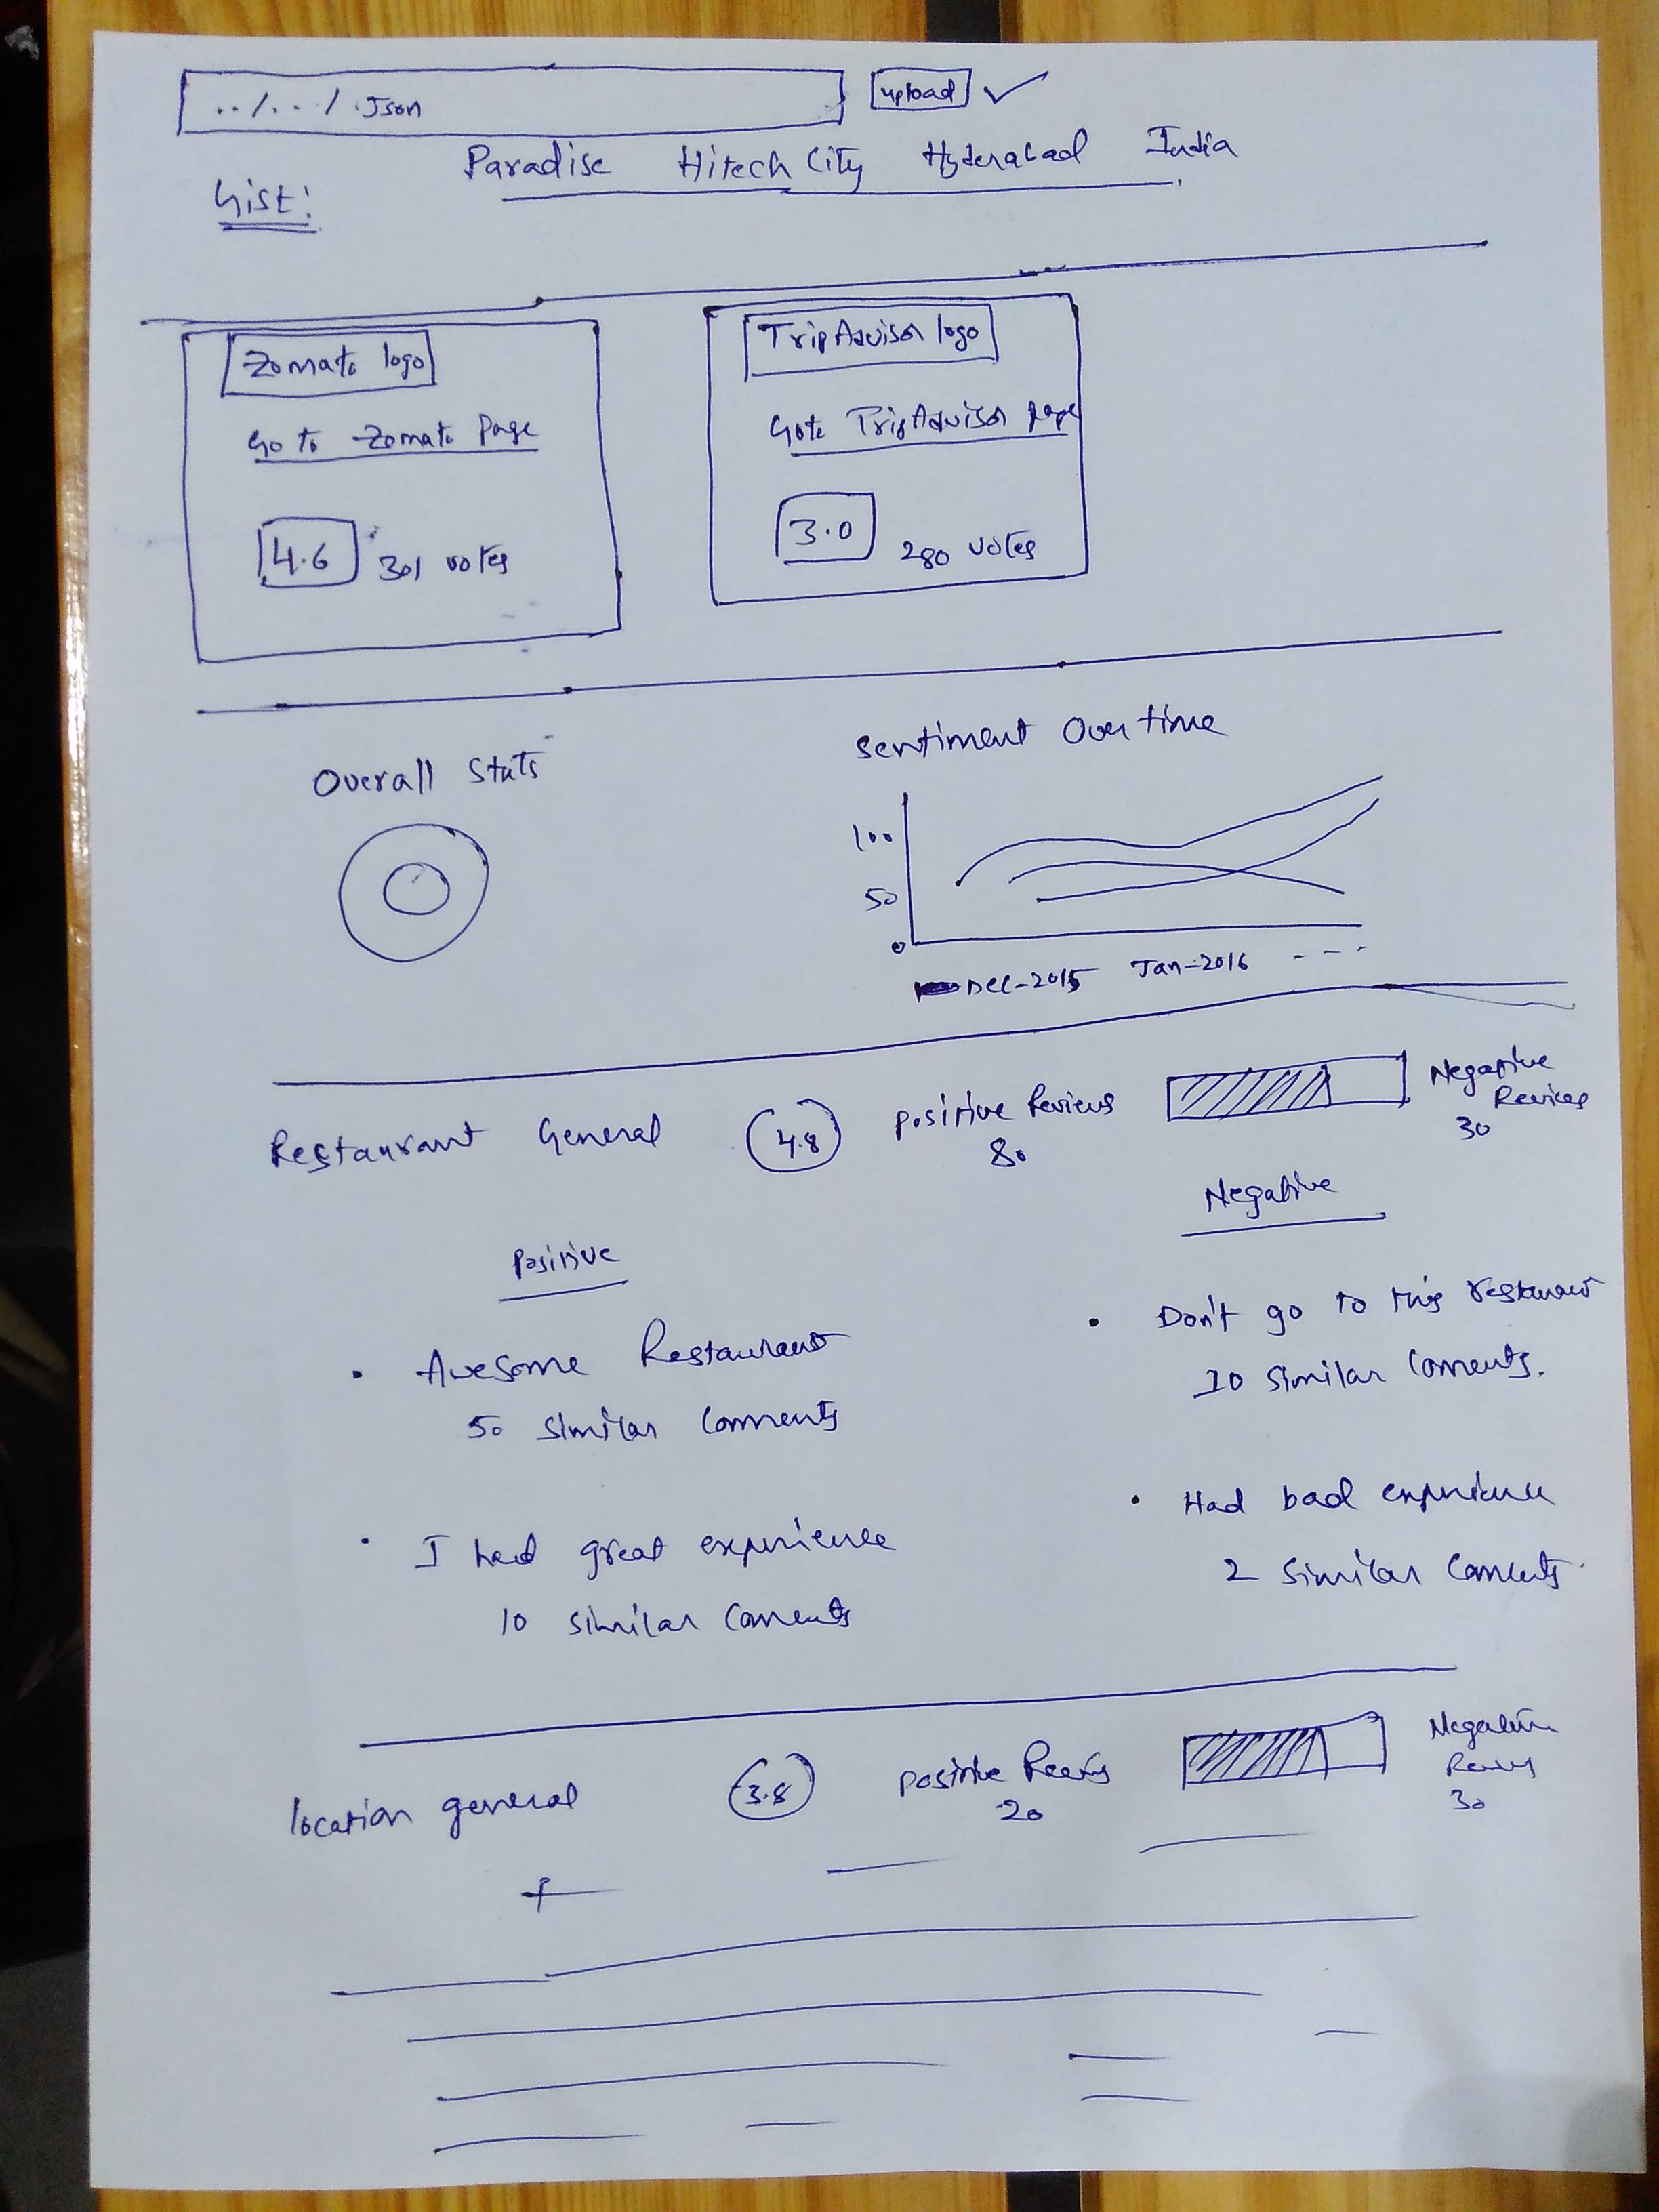 ../.../.Json upload
Paradise Hitech City Hyderabad India
Gist:
Zomato logo
Go to Zomato Page
4.6 301 votes
TripAdvisor logo
Goto TripAdvisor page
3.0 280 votes
Overall Stats
Sentiment Over time
100
50
0
Dec-2015 Jan-2016 - - -
Restaurant General 4.8 positive Reviews
80
Negative
Reviews
30
Positive
• Awesome Restaurant
50 Similar Comments
• I had great experience
10 similar Comments
Negative
• Don't go to this restaurant
10 Similar Comments.
• Had bad experience
2 Similar Comments
location general 3.8 positive Reviews
20
Negative
Reviews
30